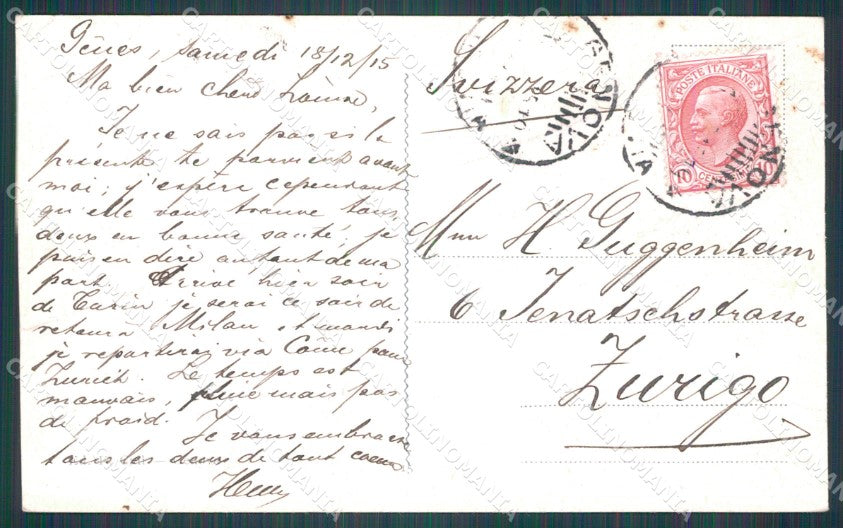 Gênes, samedi 18/12/15
Ma bien chère
Je ne sais pas si la
présente te parvient avant
moi; j'espère cependant
qu'elle vous trouve tous
deux en bonne santé; je
puis en dire autant de ma
part. Arrivé hier soir
de Turin je serai ce soir de
retour a Milan et mardi
je repartirai via Côme pour
Zurich. Le temps est
mauvais, pluie mais pas
de froid. Je vous embrasse
tous les deux de tout coeur
Henry
Svizzera
POSTE ITALIANE
10 CENT 10
H Guggenheim
6 Jenatschstrasse
Zurigo
CARTOLINOMANIA